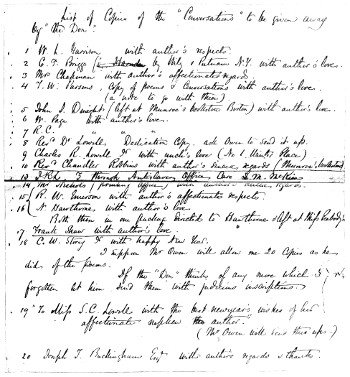 List of Copies of the "Conversations" to be given away
by "the Don"
1 W. L. Garrison with author's respects.
2 C. F. Briggs by Wiley & Putnam N.Y. with author's love.
3 Mrs Chapman with author's affectionate regards
4 T. W. Parsons, copy of poems & Conversations with author's love.
(a note to go with them)
5 John S. Dwight (left at Munroe's bookstore Boston) with author's love.
6 W. Page with author's love.
7 R. C. " "
8 Revd Dr Lowell, Dedication Copy. ask Owen to send it up.
9 Charles R. Lowell Jr with uncle's love (No 1 Winter Place)
10 Revd Chandler Robbins with author's regards (Munroe's bookstore)
13 J.R.L. through Antislavery Office, Care J. M. McKim
14 Mr Nichols (printing office) with author's regards.
15 R. W. Emerson with author's affectionate respects.
16 N. Hawthorne with author's love.
Both them in one directed to Hawthorne & left at Miss Peabody's
17 Frank Shaw with author's love.
18 C. W. Story Jr with happy New Year.
I suppose Mr Owen will allow me 20 copies as he
did of the poems.
If the "Don" thinks of any more which I
forgotten let him send them with judicious inscriptions.
19 To Miss S. C. Lowell with the best newyear's wishes of her
affectionate nephew the author.
(Mr Owen will send this up.)
20 Joseph T. Buckingham Esqr with author's regards & thanks